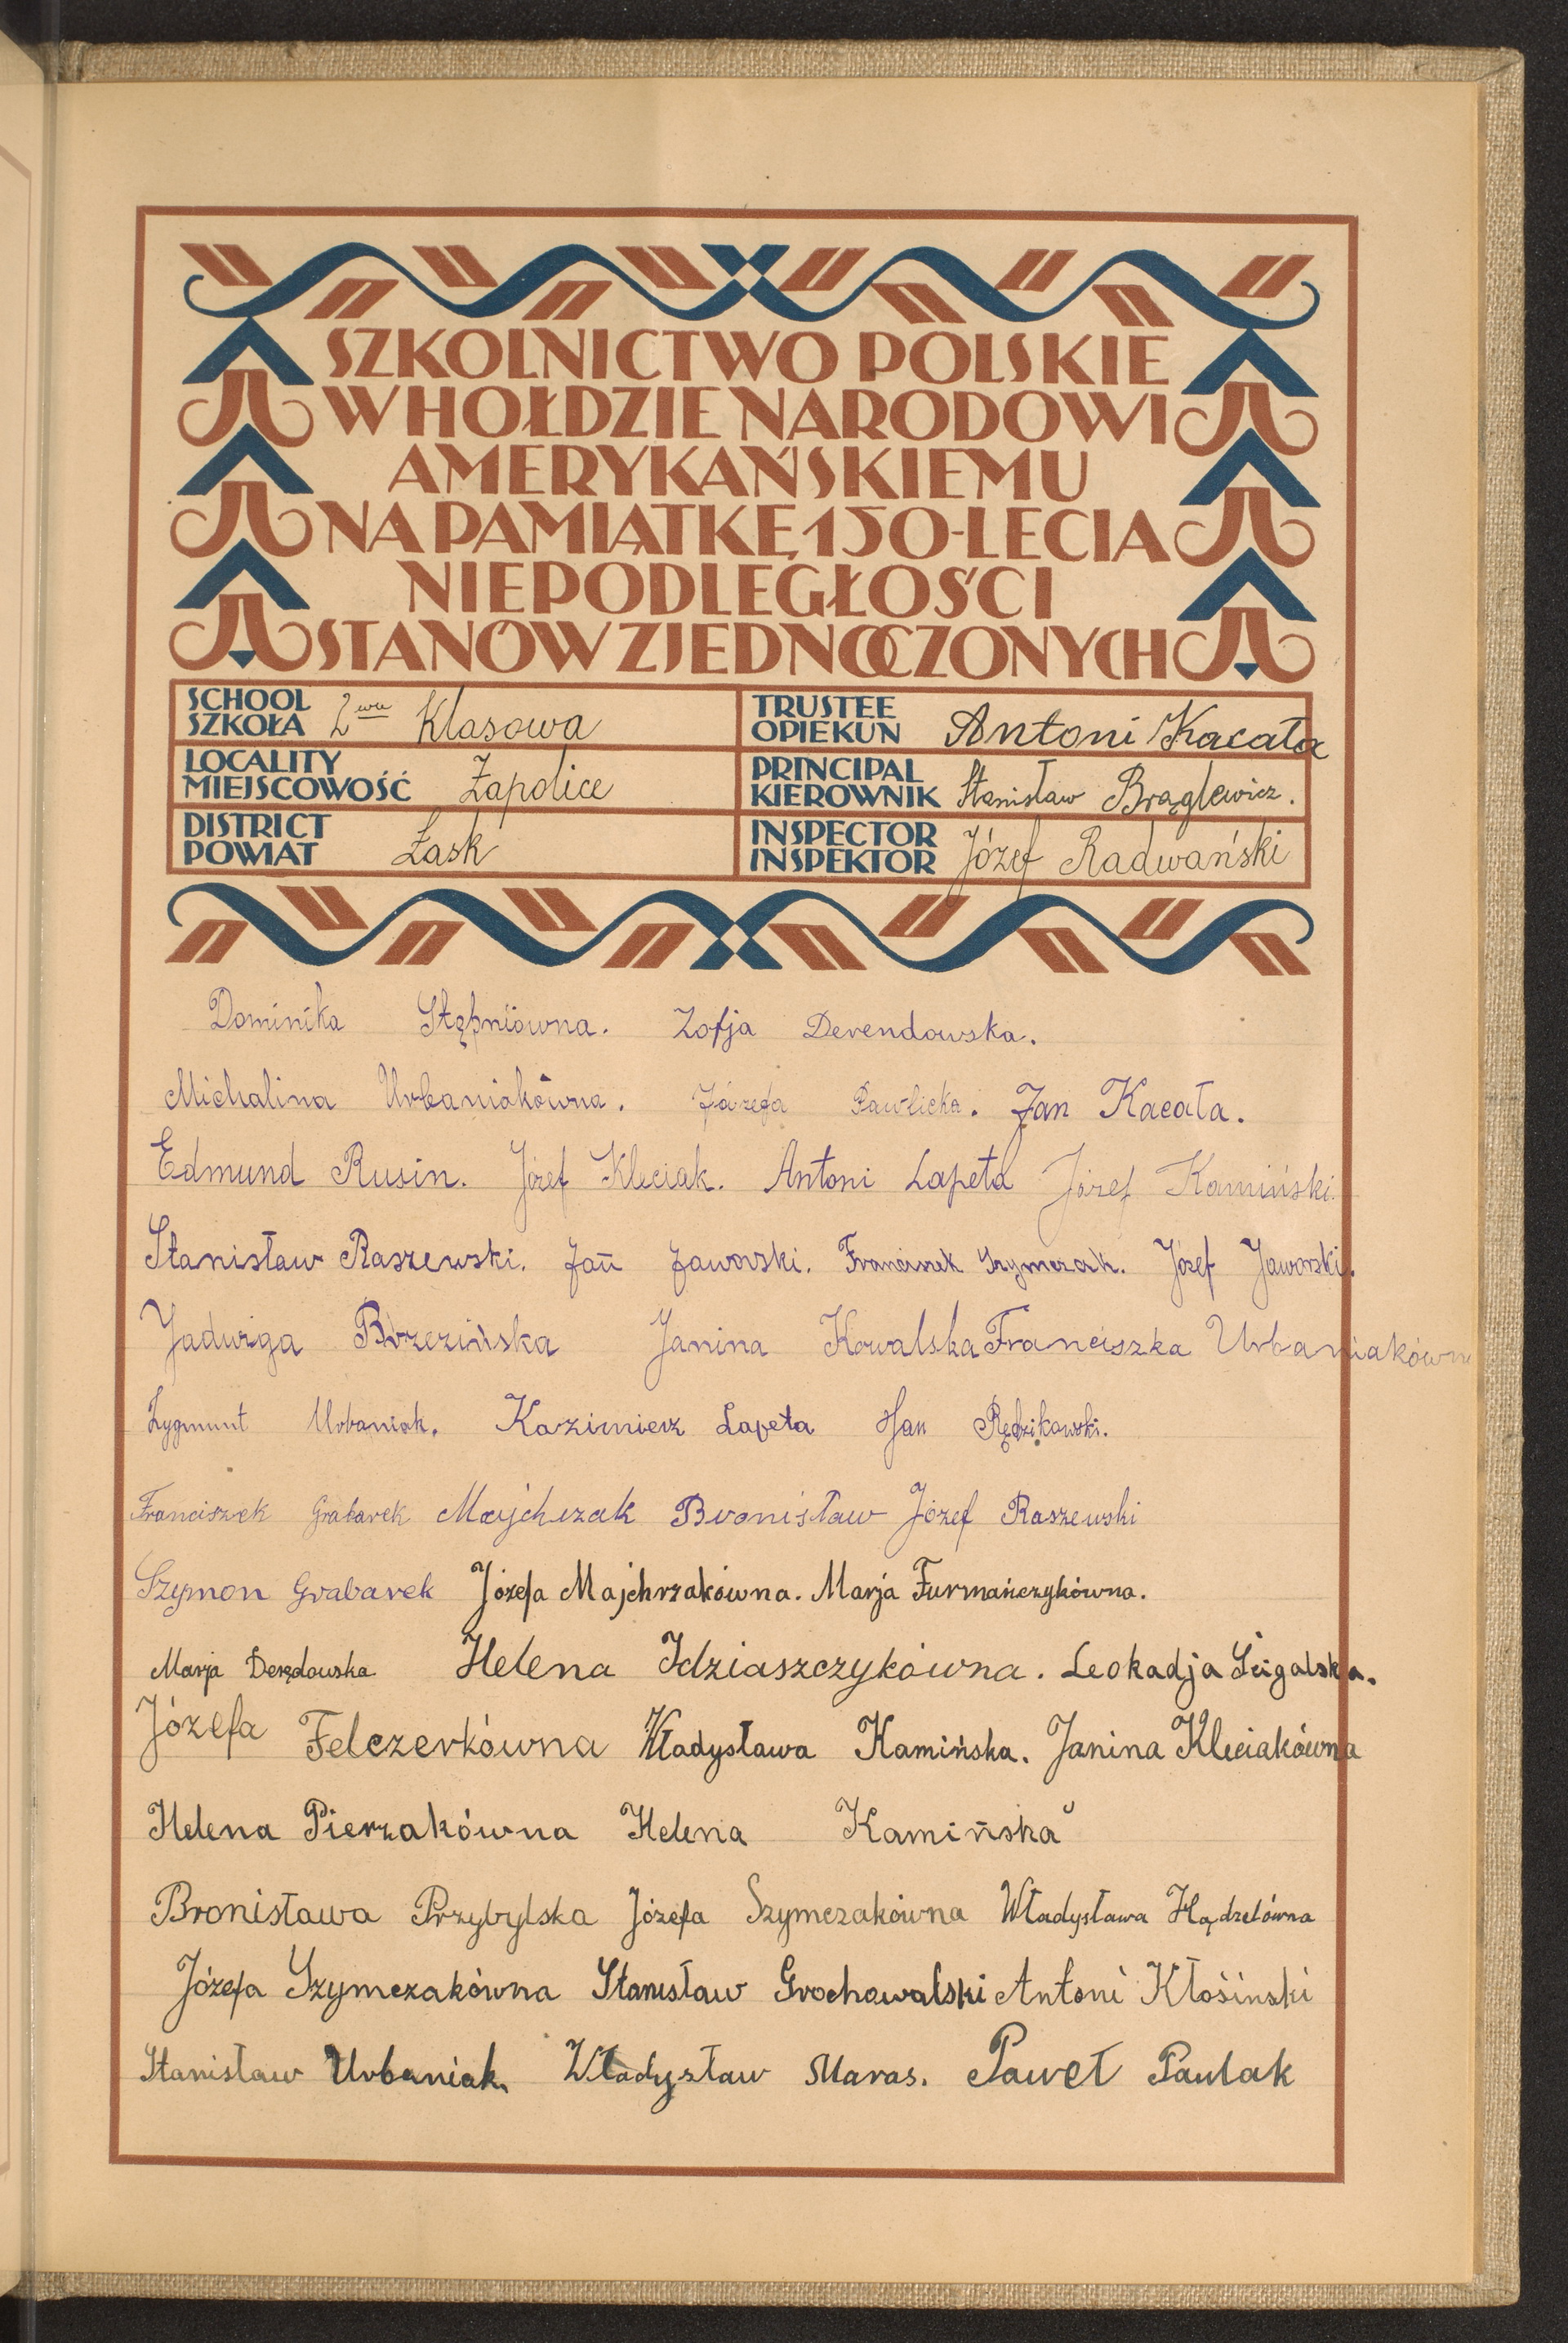 SZKOLNICTWO POLSKIE
W HOŁDZIE NARODOWI
AMERYKAŃSKIEMU
NA PAMIĄTKĘ 150-LECIA
NIEPODLEGŁOŚCI
STANÓW ZJEDNOCZONYCH
SCHOOL
SZKOŁA 2wu Klasowa
TRUSTEE
OPIEKUN Antoni Kacała
LOCALITY
MIEJSCOWOŚĆ Zapolice
PRINCIPAL
KIEROWNIK Stanisław Brąglewicz.
DISTRICT
POWIAT Łask
INSPECTOR
INSPEKTOR Józef Radwański
Dominika Stępniówna. Zofja Derendowska.
Michalina Urbaniakówna. Józefa Pawlicka. Jan Kacała.
Edmund Rusin. Józef Kleciak. Antoni Lapeta Józef Kamiński.
Stanisław Raszewski. Jan Jaworski. Franciszek Szymczak. Józef Jaworski.
Jadwiga Brzezińska Janina Kowalska Franciszka Urbaniakówn
Zygmunt Urbaniak. Kazimierz Lapeta Jan Rędzikowski.
Franciszek Grabarek Majchrzak Bronisław Józef Raszewski
Szymon Grabarek Józefa Majchrzakówna. Marja Furmańczykówna.
Marja Derędowska Helena Idziaszczykówna. Leokadja Ścigalska.
Józefa Felczerkówna Władysława Kamińska. Janina Kleciakówna
Helena Pierzakówna Helena Kamińska
Bronisława Przybylska Józefa Szymczakówna Władysława
Józefa Szymczakówna Stanisław Grochowalski Antoni Kłośiński
Stanisław Urbaniak. Władysław Maras. Paweł Pawlak